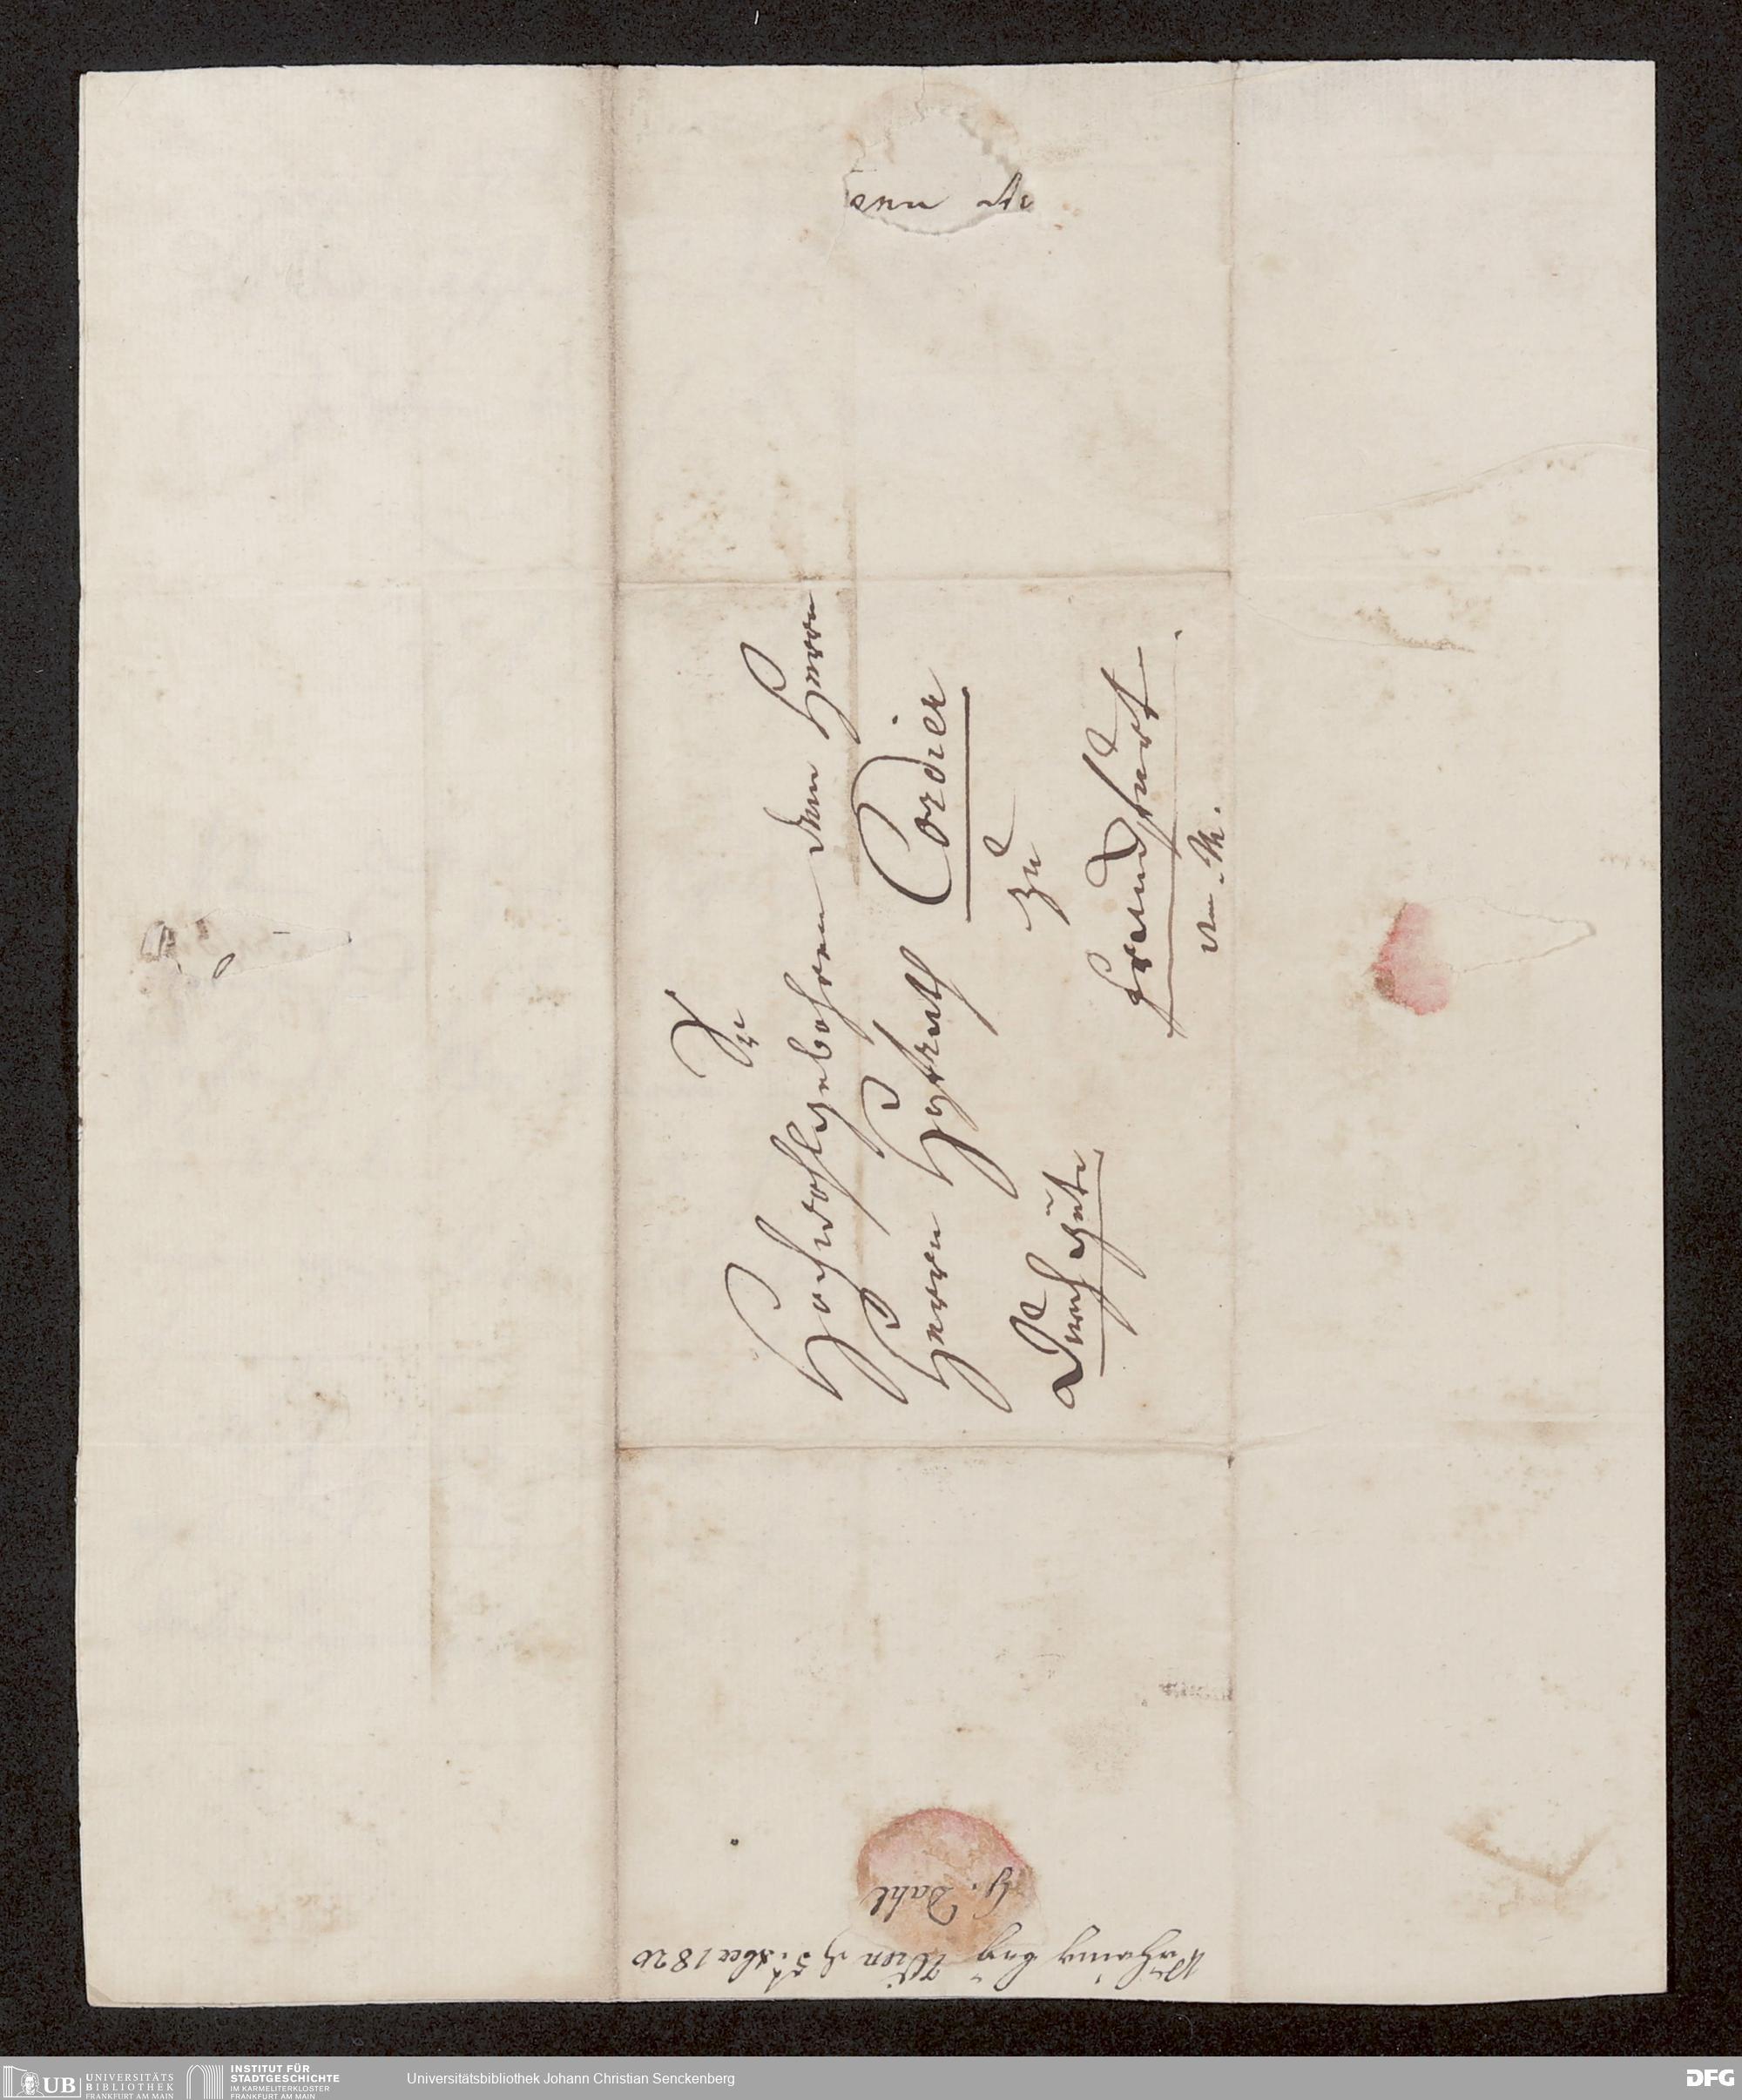 Sr
Hochwohlgebohren dem Herrn
Herrn Hofrath Cordier
zu
Franckfurt
a. M.
Durch güte
Währing bey Wien d 5t. 8ber 1820
G. Dahl
UB
UNIVERSITÄTS
BIBLIOTHEK
FRANKFURT AM MAIN
INSTITUT FÜR
STADTGESCHICHTE
IM KARMELITERKLOSTER
FRANKFURT AM MAIN
Universitätsbibliothek Johann Christian Senckenberg
DFG